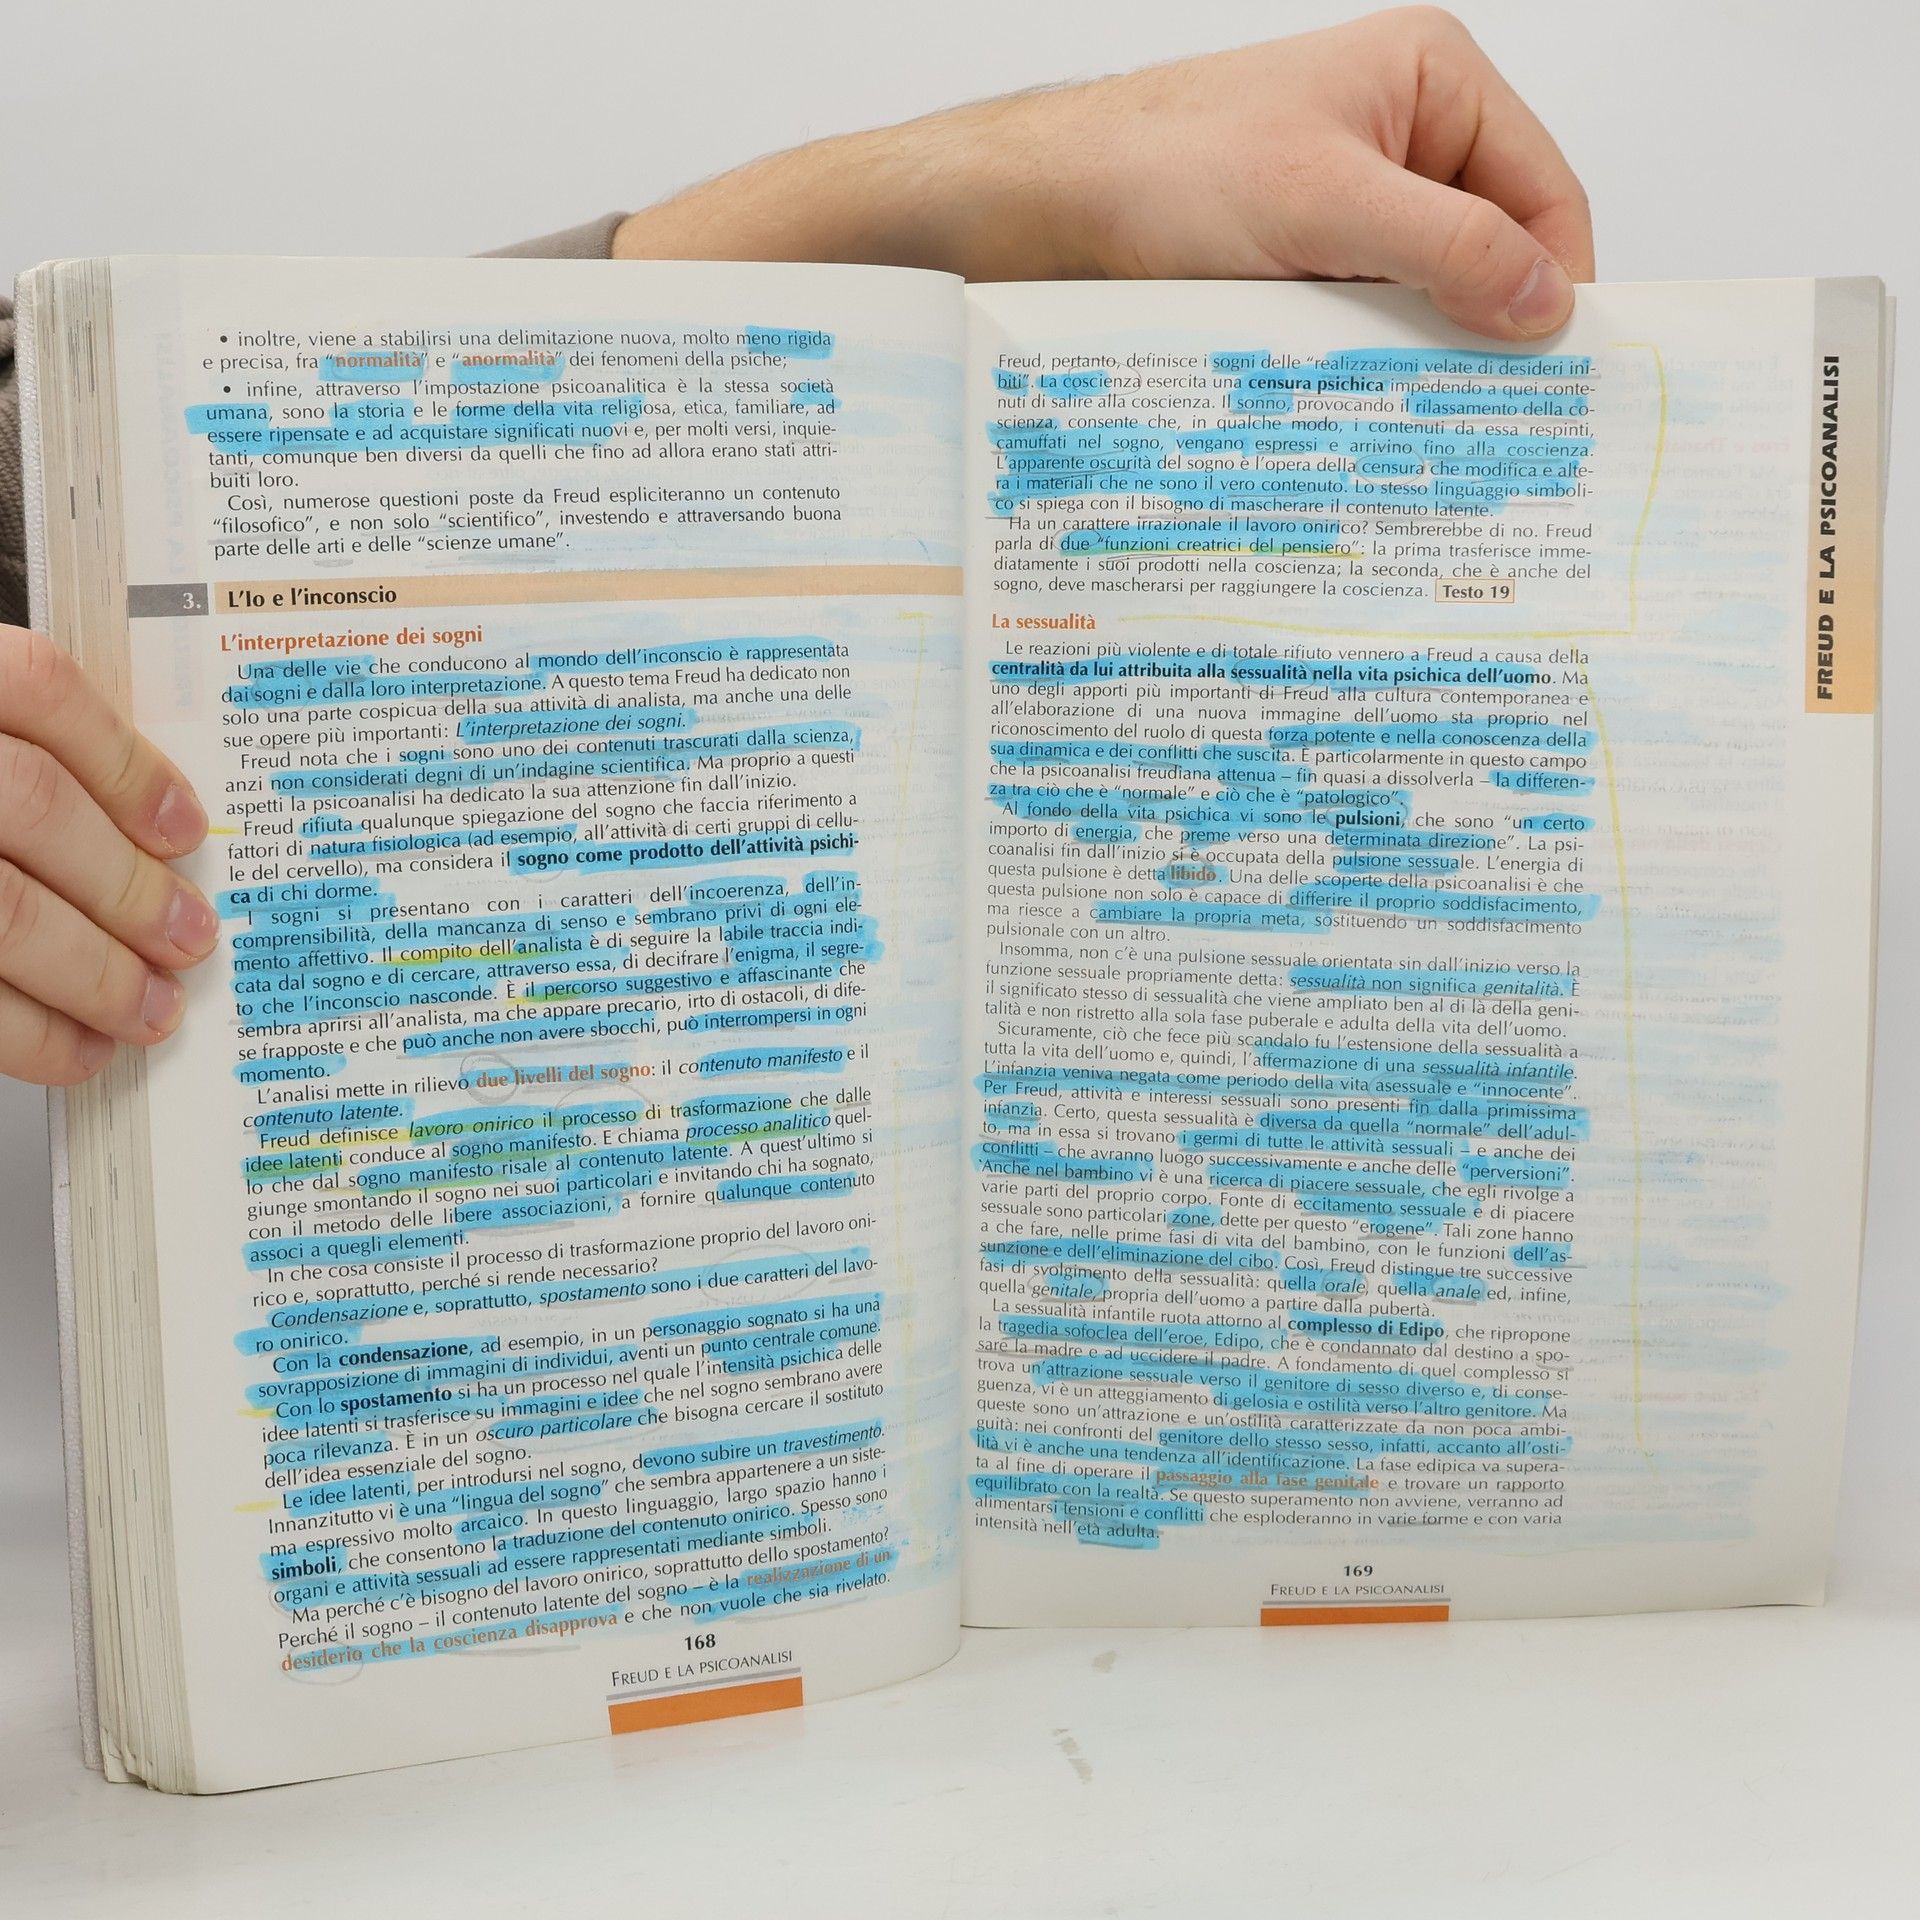 • inoltre, viene a stabilirsi una delimitazione nuova, molto meno rigida
e precisa, fra “normalità” e “anormalità” dei fenomeni della psiche;
• infine, attraverso l’impostazione psicoanalitica è la stessa società
umana, sono la storia e le forme della vita religiosa, etica, familiare, ad
essere ripensate e ad acquistare significati nuovi e, per molti versi, inquie-
tanti, comunque ben diversi da quelli che fino ad allora erano stati attri-
buiti loro.
Così, numerose questioni poste da Freud espliciteranno un contenuto
“filosofico”, e non solo “scientifico”, investendo e attraversando buona
parte delle arti e delle “scienze umane”.
3. L’Io e l’inconscio
L’interpretazione dei sogni
Una delle vie che conducono al mondo dell’inconscio è rappresentata
dai sogni e dalla loro interpretazione. A questo tema Freud ha dedicato non
solo una parte cospicua della sua attività di analista, ma anche una delle
sue opere più importanti: L’interpretazione dei sogni.
Freud nota che i sogni sono uno dei contenuti trascurati dalla scienza,
anzi non considerati degni di un’indagine scientifica. Ma proprio a questi
aspetti la psicoanalisi ha dedicato la sua attenzione fin dall’inizio.
Freud rifiuta qualunque spiegazione del sogno che faccia riferimento a
fattori di natura fisiologica (ad esempio, all’attività di certi gruppi di cellu-
le del cervello), ma considera il sogno come prodotto dell’attività psichi-
ca di chi dorme.
I sogni si presentano con i caratteri dell’incoerenza, dell’in-
comprensibilità, della mancanza di senso e sembrano privi di ogni ele-
mento affettivo. Il compito dell’analista è di seguire la labile traccia indi-
cata dal sogno e di cercare, attraverso essa, di decifrare l’enigma, il segre-
to che l’inconscio nasconde. È il percorso suggestivo e affascinante che
sembra aprirsi all’analista, ma che appare precario, irto di ostacoli, di dife-
se frapposte e che può anche non avere sbocchi, può interrompersi in ogni
momento.
L’analisi mette in rilievo due livelli del sogno: il contenuto manifesto e il
contenuto latente.
Freud definisce lavoro onirico il processo di trasformazione che dalle
idee latenti conduce al sogno manifesto. E chiama processo analitico quel-
lo che dal sogno manifesto risale al contenuto latente. A quest’ultimo si
giunge smontando il sogno nei suoi particolari e invitando chi ha sognato,
con il metodo delle libere associazioni, a fornire qualunque contenuto
associ a quegli elementi.
In che cosa consiste il processo di trasformazione proprio del lavoro oni-
rico e, soprattutto, perché si rende necessario?
Condensazione e, soprattutto, spostamento sono i due caratteri del lavo-
ro onirico.
Con la condensazione, ad esempio, in un personaggio sognato si ha una
sovrapposizione di immagini di individui, aventi un punto centrale comune.
Con lo spostamento si ha un processo nel quale l’intensità psichica delle
idee latenti si trasferisce su immagini e idee che nel sogno sembrano avere
poca rilevanza. È in un oscuro particolare che bisogna cercare il sostituto
dell’idea essenziale del sogno.
Le idee latenti, per introdursi nel sogno, devono subire un travestimento.
Innanzitutto vi è una “lingua del sogno” che sembra appartenere a un siste-
ma espressivo molto arcaico. In questo linguaggio, largo spazio hanno i
simboli, che consentono la traduzione del contenuto onirico. Spesso sono
organi e attività sessuali ad essere rappresentati mediante simboli.
Ma perché c’è bisogno del lavoro onirico, soprattutto dello spostamento?
Perché il sogno – il contenuto latente del sogno – è la realizzazione di un
desiderio che la coscienza disapprova e che non vuole che sia rivelato.
168
FREUD E LA PSICOANALISI
Freud, pertanto, definisce i sogni delle “realizzazioni velate di desideri ini-
biti”. La coscienza esercita una censura psichica impedendo a quei conte-
nuti di salire alla coscienza. Il sonno, provocando il rilassamento della co-
scienza, consente che, in qualche modo, i contenuti da essa respinti,
camuffati nel sogno, vengano espressi e arrivino fino alla coscienza.
L’apparente oscurità del sogno è l’opera della censura che modifica e alte-
ra i materiali che ne sono il vero contenuto. Lo stesso linguaggio simboli-
co si spiega con il bisogno di mascherare il contenuto latente.
Ha un carattere irrazionale il lavoro onirico? Sembrerebbe di no. Freud
parla di due “funzioni creatrici del pensiero”: la prima trasferisce imme-
diatamente i suoi prodotti nella coscienza; la seconda, che è anche del
sogno, deve mascherarsi per raggiungere la coscienza. Testo 19
La sessualità
Le reazioni più violente e di totale rifiuto vennero a Freud a causa della
centralità da lui attribuita alla sessualità nella vita psichica dell’uomo. Ma
uno degli apporti più importanti di Freud alla cultura contemporanea e
all’elaborazione di una nuova immagine dell’uomo sta proprio nel
riconoscimento del ruolo di questa forza potente e nella conoscenza della
sua dinamica e dei conflitti che suscita. È particolarmente in questo campo
che la psicoanalisi freudiana attenua – fin quasi a dissolverla – la differen-
za tra ciò che è “normale” e ciò che è “patologico”.
Al fondo della vita psichica vi sono le pulsioni, che sono “un certo
importo di energia, che preme verso una determinata direzione”. La psi-
coanalisi fin dall’inizio si è occupata della pulsione sessuale. L’energia di
questa pulsione è detta libido. Una delle scoperte della psicoanalisi è che
questa pulsione non solo è capace di differire il proprio soddisfacimento,
ma riesce a cambiare la propria meta, sostituendo un soddisfacimento
pulsionale con un altro.
Insomma, non c’è una pulsione sessuale orientata sin dall’inizio verso la
funzione sessuale propriamente detta: sessualità non significa genitalità. È
il significato stesso di sessualità che viene ampliato ben al di là della geni-
talità e non ristretto alla sola fase puberale e adulta della vita dell’uomo.
Sicuramente, ciò che fece più scandalo fu l’estensione della sessualità a
tutta la vita dell’uomo e, quindi, l’affermazione di una sessualità infantile.
L’infanzia veniva negata come periodo della vita asessuale e “innocente”.
Per Freud, attività e interessi sessuali sono presenti fin dalla primissima
infanzia. Certo, questa sessualità è diversa da quella “normale” dell’adul-
to, ma in essa si trovano i germi di tutte le attività sessuali – e anche dei
conflitti – che avranno luogo successivamente e anche delle “perversioni”.
Anche nel bambino vi è una ricerca di piacere sessuale, che egli rivolge a
varie parti del proprio corpo. Fonte di eccitamento sessuale e di piacere
sessuale sono particolari zone, dette per questo “erogene”. Tali zone hanno
a che fare, nelle prime fasi di vita del bambino, con le funzioni dell’as-
sunzione e dell’eliminazione del cibo. Così, Freud distingue tre successive
fasi di svolgimento della sessualità: quella orale, quella anale ed, infine,
quella genitale, propria dell’uomo a partire dalla pubertà.
La sessualità infantile ruota attorno al complesso di Edipo, che ripropone
la tragedia sofoclea dell’eroe, Edipo, che è condannato dal destino a spo-
sare la madre e ad uccidere il padre. A fondamento di quel complesso si
trova un’attrazione sessuale verso il genitore di sesso diverso e, di conse-
guenza, vi è un atteggiamento di gelosia e ostilità verso l’altro genitore. Ma
queste sono un’attrazione e un’ostilità caratterizzate da non poca ambi-
guità: nei confronti del genitore dello stesso sesso, infatti, accanto all’osti-
lità vi è anche una tendenza all’identificazione. La fase edipica va supera-
ta al fine di operare il passaggio alla fase genitale e trovare un rapporto
equilibrato con la realtà. Se questo superamento non avviene, verranno ad
alimentarsi tensioni e conflitti che esploderanno in varie forme e con varia
intensità nell’età adulta.
169
FREUD E LA PSICOANALISI
FREUD E LA PSICOANALISI